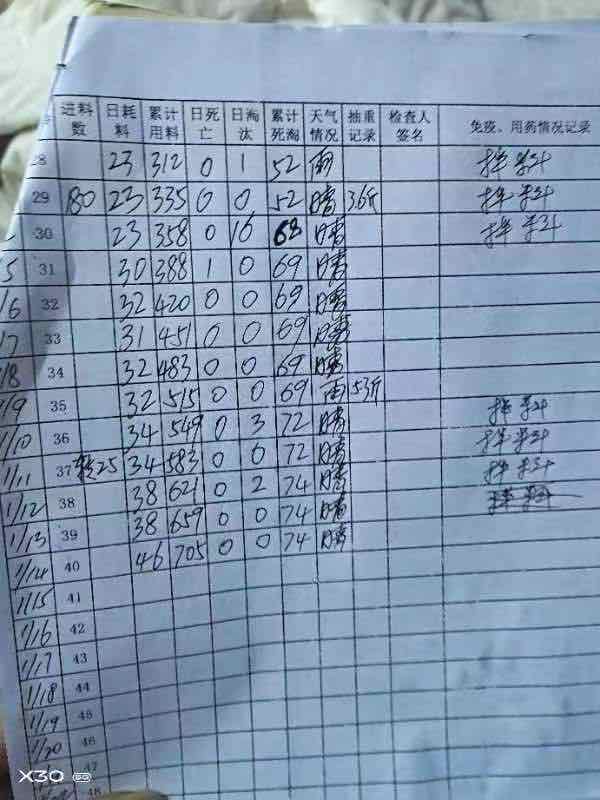 进料数 日耗料 累计用料 日死亡 日淘汰 累计死淘 天气情况 抽重记录 检查人签名 免疫、用药情况记录
28 23 312 0 1 52 雨 拌料
29 180 23 335 0 0 52 晴 3.6斤 拌料
30 23 358 0 16 68 晴 拌料
5 31 30 388 1 0 69 晴
/6 32 32 420 0 0 69 晴
/7 33 31 451 0 0 69 晴
/8 34 32 483 0 0 69 晴
1/9 35 32 515 0 0 69 雨 5.3斤
1/10 36 34 549 0 3 72 晴 拌料
1/11 37 转25 34 583 0 0 72 晴 拌料
1/12 38 38 621 0 2 74 晴 拌料
1/13 39 38 659 0 0 74 晴
1/14 40 46 705 0 0 74 晴
1/15 41
1/16 42
1/17 43
1/18 44
1/19 45
1/20 46
47
48
X30